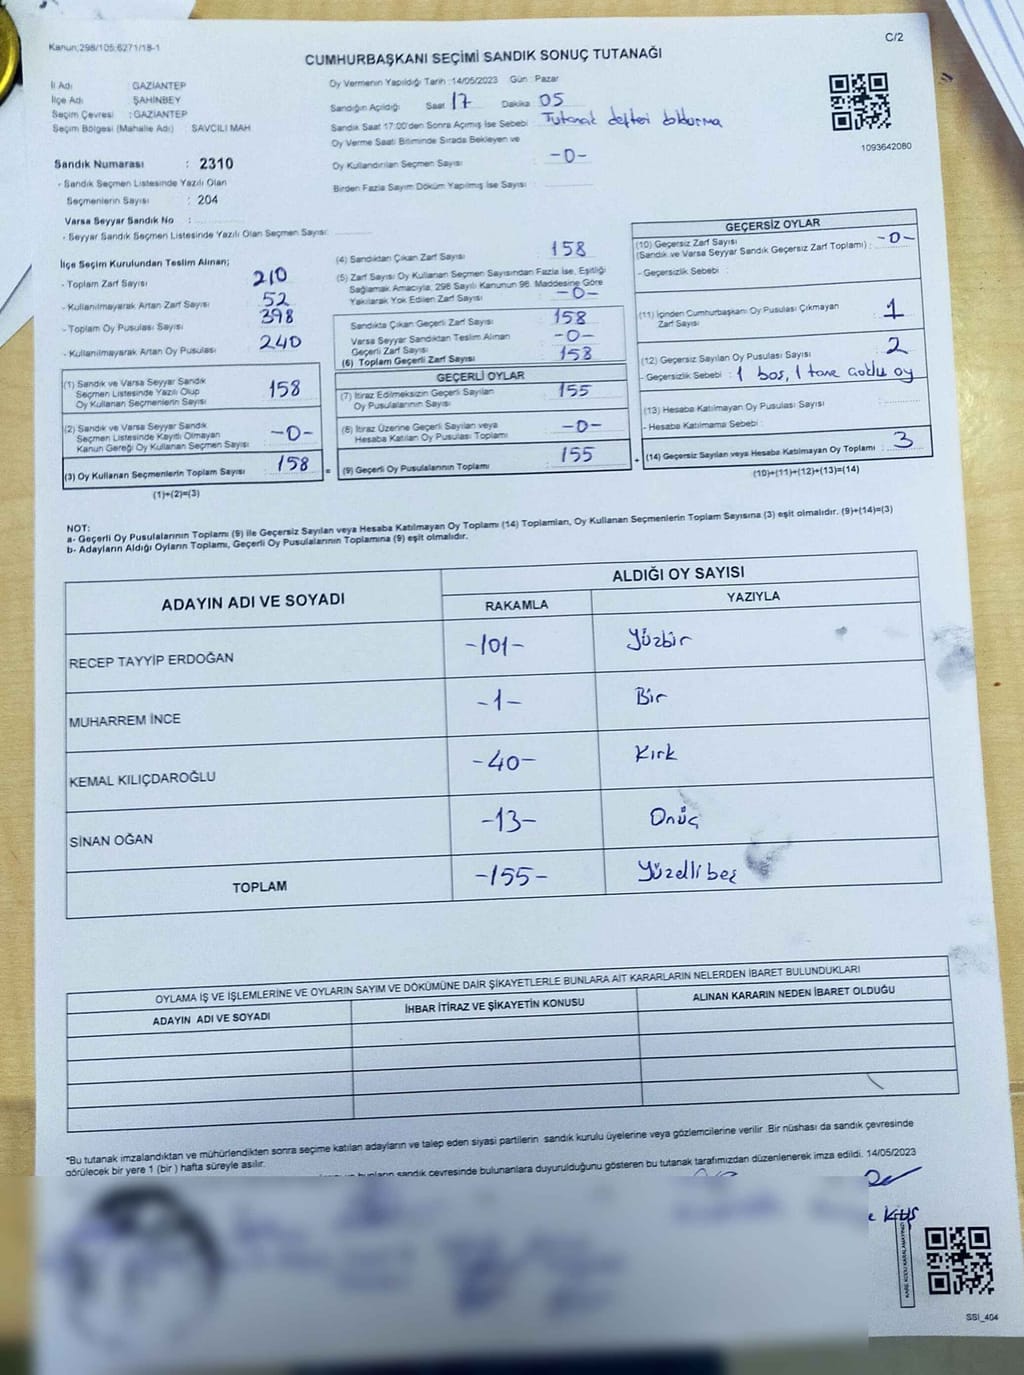 Kanun;298/105;6271/18-1
C/2
CUMHURBAŞKANI SEÇİMİ SANDIK SONUÇ TUTANAĞI
İl Adı : GAZİANTEP
İlçe Adı : ŞAHİNBEY
Seçim Çevresi : GAZİANTEP
Seçim Bölgesi (Mahalle Adı) : SAVCILI MAH
Sandık Numarası : 2310
- Sandık Seçmen Listesinde Yazılı Olan
Seçmenlerin Sayısı : 204
Varsa Seyyar Sandık No :
- Seyyar Sandık Seçmen Listesinde Yazılı Olan Seçmen Sayısı:
Oy Vermenin Yapıldığı Tarih :14/05/2023 Gün : Pazar
Sandığın Açıldığı Saat 17 Dakika 05
Sandık Saat 17:00'den Sonra Açmış İse Sebebi Tutanak defteri doldurma
Oy Verme Saati Bitiminde Sırada Bekleyen ve
Oy Kullandırılan Seçmen Sayısı -0-
Birden Fazla Sayım Döküm Yapılmış İse Sayısı :
1093642080
İlçe Seçim Kurulundan Teslim Alınan;
- Toplam Zarf Sayısı 210
- Kullanılmayarak Artan Zarf Sayısı 52
- Toplam Oy Pusulası Sayısı 398
- Kullanılmayarak Artan Oy Pusulası 240
(1) Sandık ve Varsa Seyyar Sandık
Seçmen Listesinde Yazılı Olup
Oy Kullanan Seçmenlerin Sayısı 158
(2) Sandık ve Varsa Seyyar Sandık
Seçmen Listesinde Kayıtlı Olmayan
Kanun Gereği Oy Kullanan Seçmen Sayısı -0-
(3) Oy Kullanan Seçmenlerin Toplam Sayısı 158
(1)+(2)=(3)
(4) Sandıktan Çıkan Zarf Sayısı 158
(5) Zarf Sayısı Oy Kullanan Seçmen Sayısından Fazla İse, Eşitliği
Sağlamak Amacıyla, 298 Sayılı Kanunun 98. Maddesine Göre
Yakılarak Yok Edilen Zarf Sayısı -0-
Sandıkta Çıkan Geçerli Zarf Sayısı 158
Varsa Seyyar Sandıktan Teslim Alınan
Geçerli Zarf Sayısı -0-
(6) Toplam Geçerli Zarf Sayısı 158
GEÇERLİ OYLAR
(7) İtiraz Edilmeksizin Geçerli Sayılan
Oy Pusulalarının Sayısı 155
(8) İtiraz Üzerine Geçerli Sayılan veya
Hesaba Katılan Oy Pusulası Toplamı -0-
= (9) Geçerli Oy Pusulalarının Toplamı 155
GEÇERSİZ OYLAR
(10) Geçersiz Zarf Sayısı
(Sandık ve Varsa Seyyar Sandık Geçersiz Zarf Toplamı) : -0-
- Geçersizlik Sebebi :
(11) İçinden Cumhurbaşkanı Oy Pusulası Çıkmayan
Zarf Sayısı 1
(12) Geçersiz Sayılan Oy Pusulası Sayısı 2
- Geçersizlik Sebebi : 1 boş, 1 tane çoklu oy
(13) Hesaba Katılmayan Oy Pusulası Sayısı
- Hesaba Katılmama Sebebi :
+ (14) Geçersiz Sayılan veya Hesaba Katılmayan Oy Toplamı : 3
(10)+(11)+(12)+(13)=(14)
NOT:
a- Geçerli Oy Pusulalarının Toplamı (9) ile Geçersiz Sayılan veya Hesaba Katılmayan Oy Toplamı (14) Toplamları, Oy Kullanan Seçmenlerin Toplam Sayısına (3) eşit olmalıdır. (9)+(14)=(3)
b- Adayların Aldığı Oyların Toplamı, Geçerli Oy Pusulalarının Toplamına (9) eşit olmalıdır.
ADAYIN ADI VE SOYADI
ALDIĞI OY SAYISI
RAKAMLA YAZIYLA
RECEP TAYYİP ERDOĞAN -101- Yüzbir
MUHARREM İNCE -1- Bir
KEMAL KILIÇDAROĞLU -40- Kırk
SİNAN OĞAN -13- Onüç
TOPLAM -155- Yüzellibeş
OYLAMA İŞ VE İŞLEMLERİNE VE OYLARIN SAYIM VE DÖKÜMÜNE DAİR ŞİKAYETLERLE BUNLARA AİT KARARLARIN NELERDEN İBARET BULUNDUKLARI
ADAYIN ADI VE SOYADI İHBAR İTİRAZ VE ŞİKAYETİN KONUSU ALINAN KARARIN NEDEN İBARET OLDUĞU
*Bu tutanak imzalandıktan ve mühürlendikten sonra seçime katılan adayların ve talep eden siyasi partilerin sandık kurulu üyelerine veya gözlemcilerine verilir .Bir nüshası da sandık çevresinde
görülecek bir yere 1 (bir ) hafta süreyle asılır.
bunların sandık çevresinde bulunanlara duyurulduğunu gösteren bu tutanak tarafımızdan düzenlenerek imza edildi. 14/05/2023
KARE KODU KARALAMAYINIZ
SSI_404